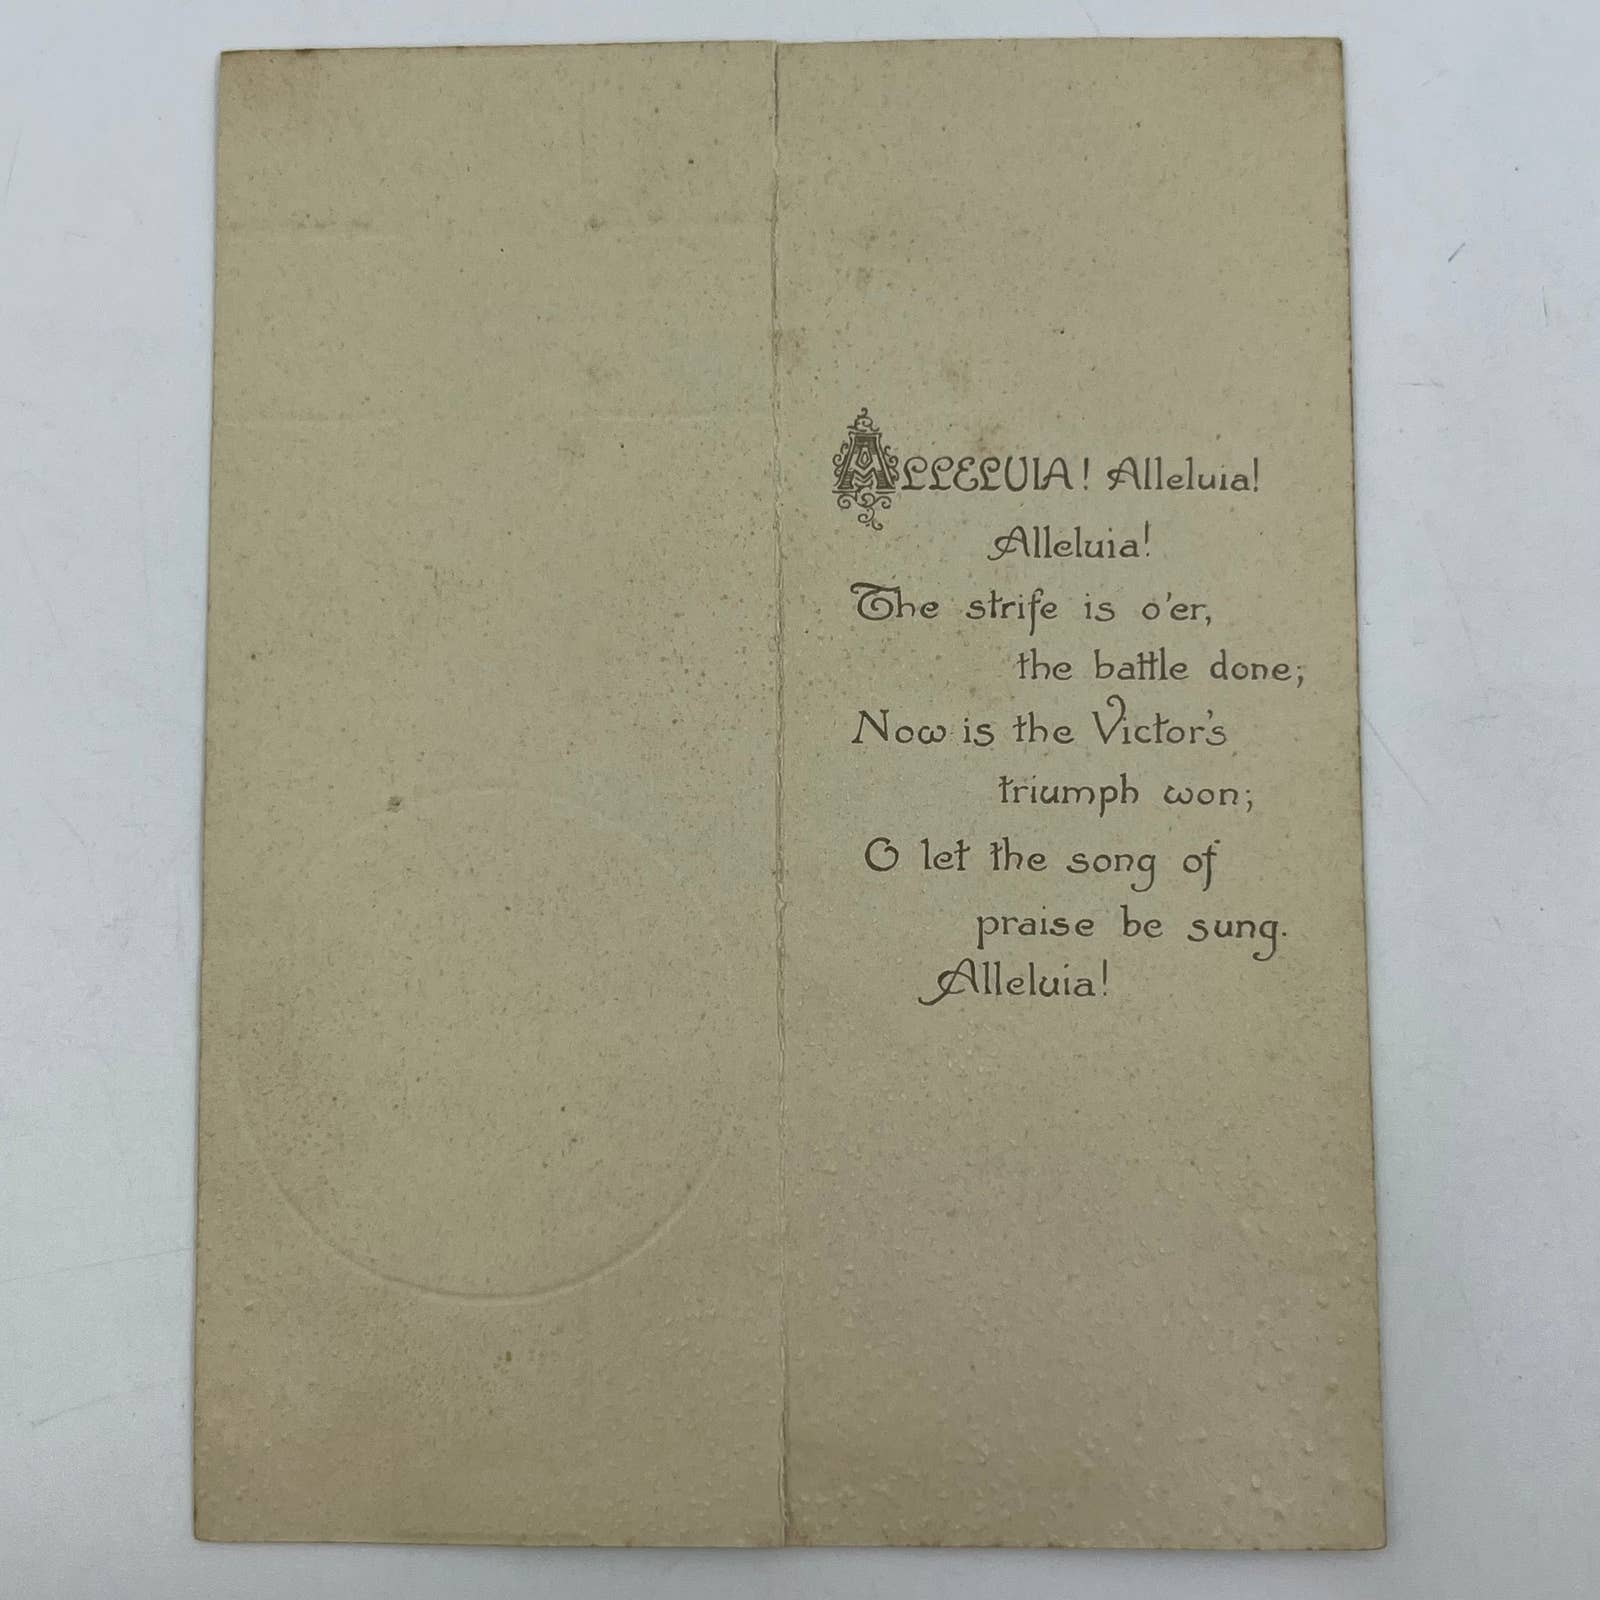 ALLELUIA! Alleluia!
Alleluia!
The strife is o'er,
the battle done;
Now is the Victor's
triumph won;
O let the song of
praise be sung.
Alleluia!